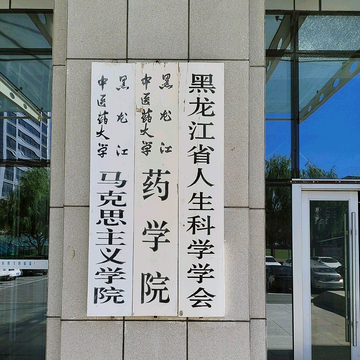 黑龙江省人生科学学会
黑龙江
中医药大学
药学院
黑龙江
中医药大学
马克思主义学院